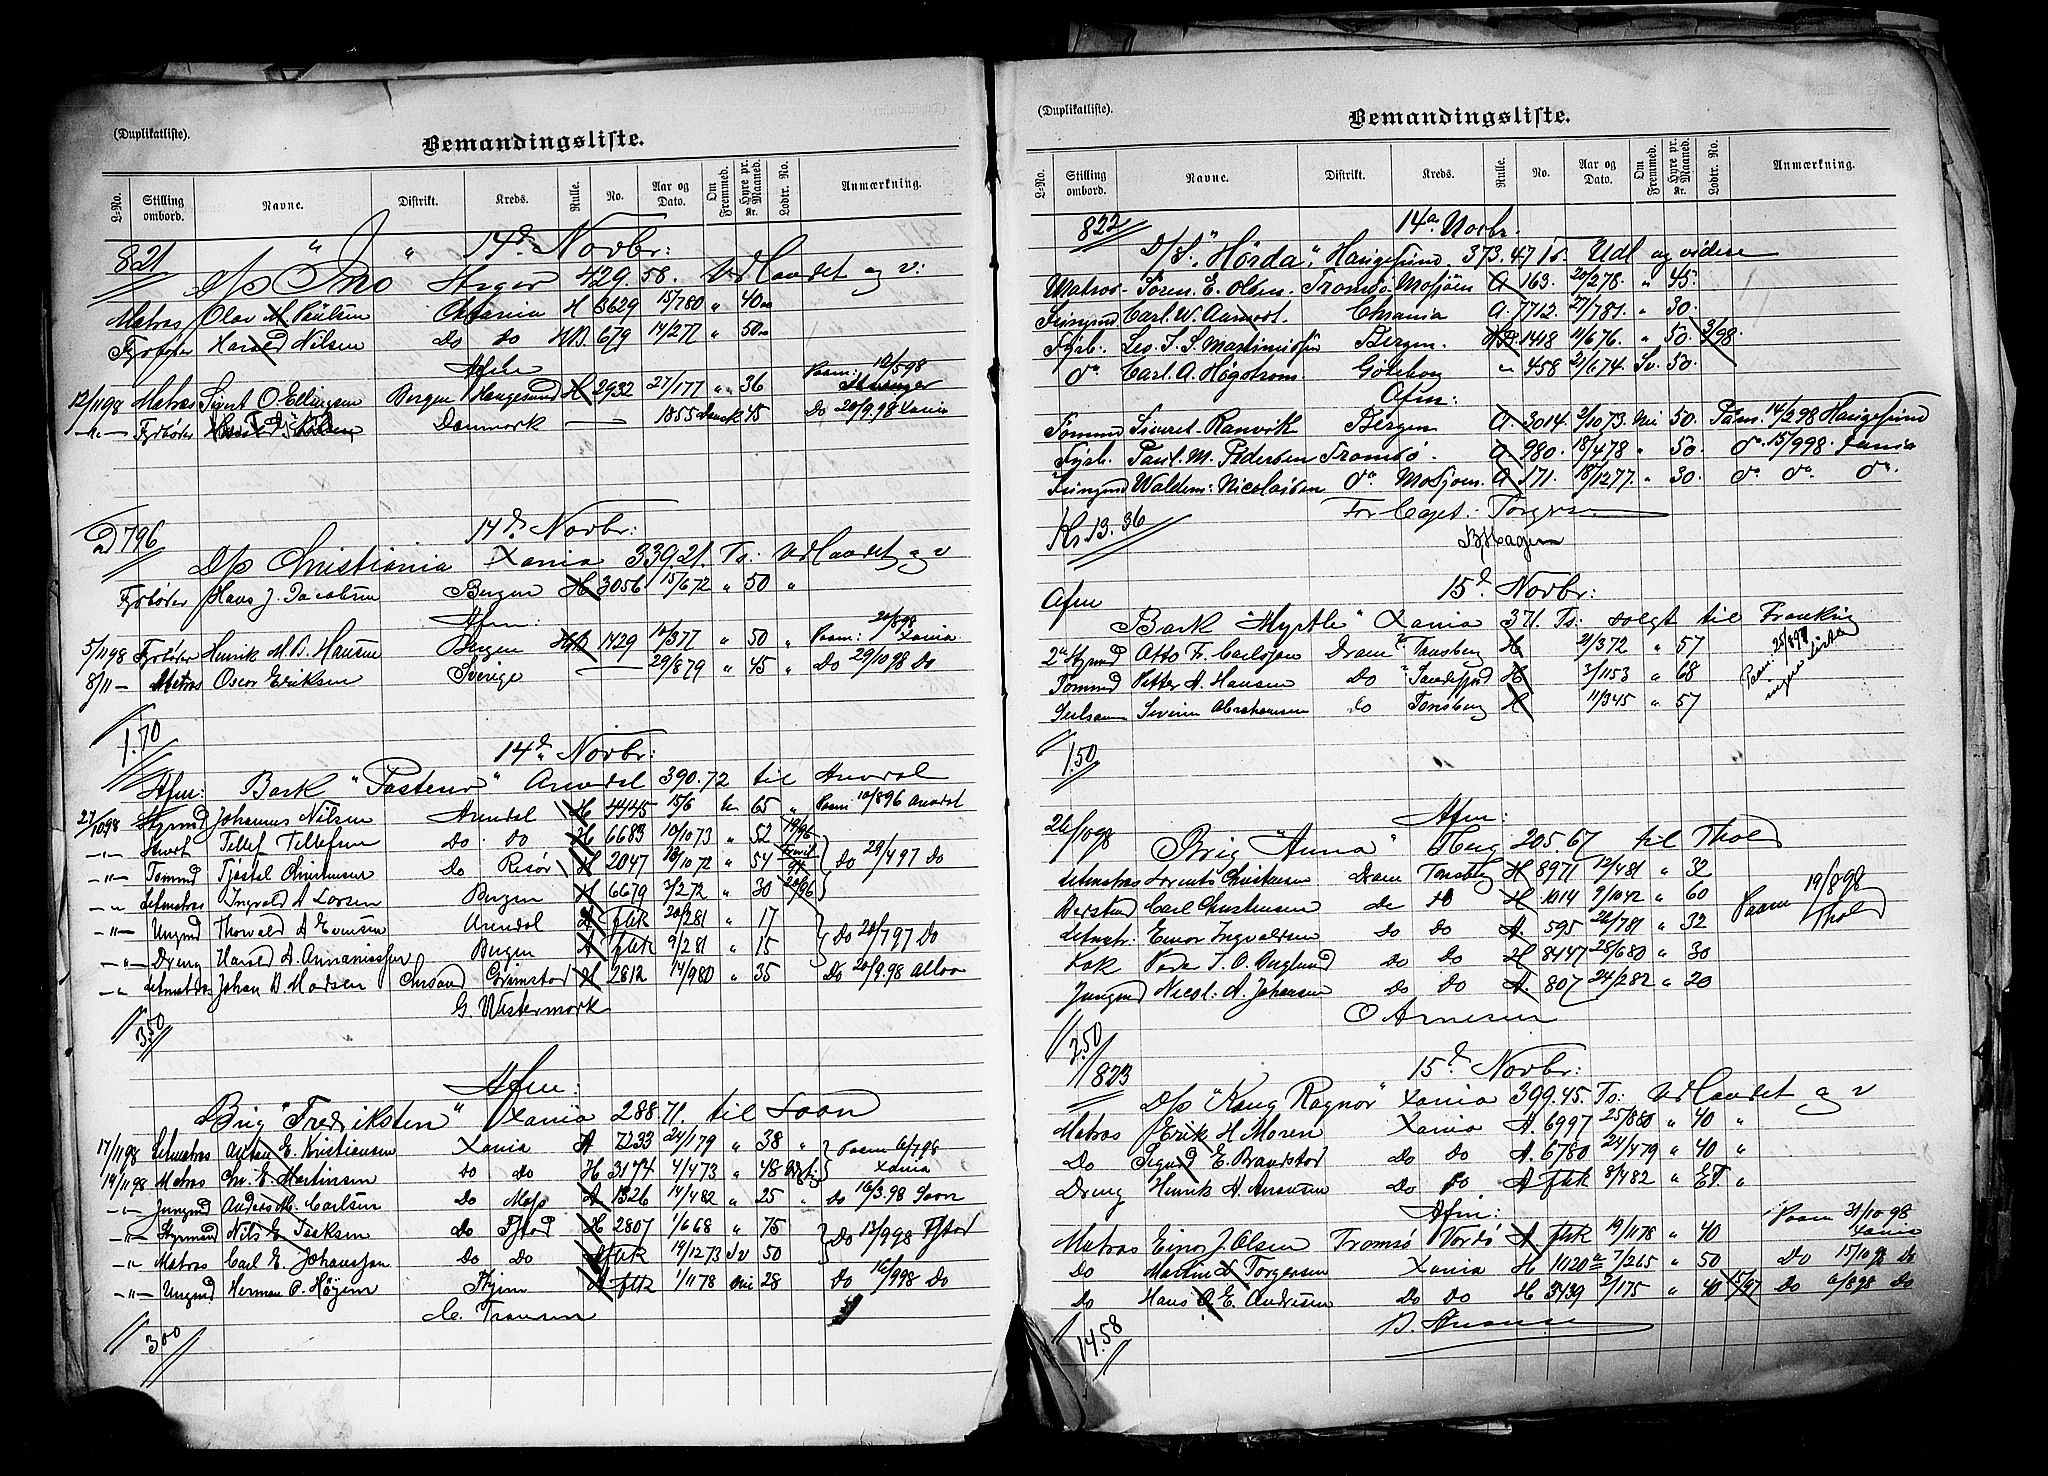 (Duplikatliste).
Bemandingsliste.
L-No. Stilling ombord. Navne. Distrikt. Kreds. Rulle. No. Aar og Dato. Om Fremmed. Hyre pr. Maaned. Kr. Lodtr. No. Anmærkning.
821 14de Novbr:
D/S Ino 429.58. Udlandet og v:
Matros Olav M. Paulsen Xania H 3629 15/780 " 40
Fyrbøter Harald Nilsen Do Do HD 679 14/277 " 50
Afm 12/598
12/11 98 Matros Sivert O. Ellingsen Bergen Haugesund H 2932 27/177 " 36 Paam: Stavanger
Fyrbøter Danmark — 1855 Dansk 45 Do 20/9.98 Xania
D 796 14de Novbr:
D/S Christiania Xania 339.21. Ts: Udlandet og v
Fyrbøter Hans J. Jacobsen Bergen H 3056 15/672 " 50 "
Afm:
5/11 98 Fyrbøter Henrik M. B. Hansen Bergen HB 1429 12/377 " 50 " Paam: 20/898 Xania
8/11 — Matros Oscar Eriksen Sverige — 29/879 " 45 " Do 29/10 98 Do
1.70
14de Novbr:
Afm: Bark "Pasteur" Arendal 390.72 til Arendal
27/10 98 Styrmd Johannes Nilsen Arendal H 4445 15/6 65 " Paam 10/896 Arendal
Stuert Tellef Tellefsen Do Do H 6683 10/1073 " 52 19/96
Tømmd Tjøstel Christensen Do Risør H 2047 18/1072 " 54 Do 29/497 Do
Letmatros Ingvald A Larsen Bergen H 6679 2/272 " 30 20/96
Ungmd Thorvald A Evensen Arendal A ftk 20/281 " 17
Dreng Harald A. Annaniassen Bergen A ftk 9/281 " 15 Do 20/797 Do
Letmat Do Johan B Madsen Chrsand Grimstad H 2812 14/980 " 35 Do 20/9.98 Alloa
G. Westermark
3.50
Afm:
Brig "Fredriksten" Xania 288.71. til Laan
17/11 98 Letmatros Anton E. Kristiansen Xania A 7233 24/179 " 38 " Paam 6/798
19/11 98 Matros Chr. E. Martinsen Do Do H 3174 4/473 " 48 Xania
Jungmd Anders M. Carlsen Do Moss A 1326 14/482 " 25 " Do 16/3.98 Laan
Styrmand Nils E. Isaksen Do Fstad H 2807 1/668 " 75 Do 13/998 Fstad
Matros Carl E. Johanssen Do Do A ftk 19/1273 Sv 50
Ungmd Herman P. Høyem A ftk 1/1178 28 Do 16/998 Do
C. Fransen
3.00
(Duplikatliste).
Bemandingsliste.
L-No. Stilling ombord. Navne. Distrikt. Kreds. Rulle. No. Aar og Dato. Om Fremmed. Hyre pr. Maaned. Kr. Lodtr. No. Anmærkning.
822 14de Novbr.
D/S. "Hørda", Haugesund. 373.47 Ts. Udl og videre
Matros. Søren. E. Olsen. Tromsø. Mosjøen A 163. 20/278. " 45.
Jungmd Carl. W. Aamodt. Chrania A. 7712. 27/781. " 30.
Fyrb. Leo. I. S. Martiniussen Bergen. HD. 1418 11/676. " 50. 3/98
do Carl. A. Högstrom. Göteborg " 458 21/674. Sv. 50.
Afm:
Tømmd Siveret. Ranvik Bergen A. 3014. 2/1073. 50. Paam. 14/298 Haugesund
Fyrb. Paul. M. Pedersen Tromsø. A 980. 18/478 " 50. do 15/998. Xania
Jungmd Waldem: Nicolaisen do Mosjøen. A 171. 18/1277. " 30. do do do
Kr. 13.36 For Capt. Torgersen
B Hagen
Afm 15de Novbr:
Bark "Myrtle" Xania 371. Ts. solgt til Frankrig
2den Styrmd Otto F. Carlsen Dram Tønsberg H 21/372 " 57
Tømmd Petter A. Hansen Do Sandefjord H 3/1153 " 68 Paam. 25/898
Seilsam Severin Abrahamsen do Tønsberg H 11/345 " 57
1.50
Afm:
26/10 98 Brig "Anna" 205.67 til Thold
Letmatros Lorents Christensen Dram Tønsberg H 8971 12/481 " 32
Carl Christensen do do H 1014 9/1042 " 60 Paam 19/898 Thold
Letmatr: Einar Ingvaldsen Do Do A. 595 26/781 " 32
Kok Peder I. O. Berglund Do Do H 8447 28/680 " 30
Jungmd Nicol: A. Johansen Do Do A. 807 24/282 " 20
O Arnesen
2.50
823 15de Novbr:
D/S "Kong Ragnar" Xania 399.45. Ts: Udlandet og v
Matros Erik H. Moren Xania A. 6997 25/880 " 40 "
Do Sigurd E. Brandstad Do Do A. 6780 24/479 " 40 "
Dreng Henrik A. Do Do A ftk 8/482 " Et "
Afm:
Matros Einar J. Olsen Tromsø Vardø A ftk 19/1178 " 40 Paam 31/10 98 Xania
Do Martin A. Torgersen Xania H 1120 a 7/265 " 50 Do 15/10 98 Do
Do Hans A. E. Andresen Do Do H 3439 2/175 " 40 15/97 Do 6/898 Do
14.58